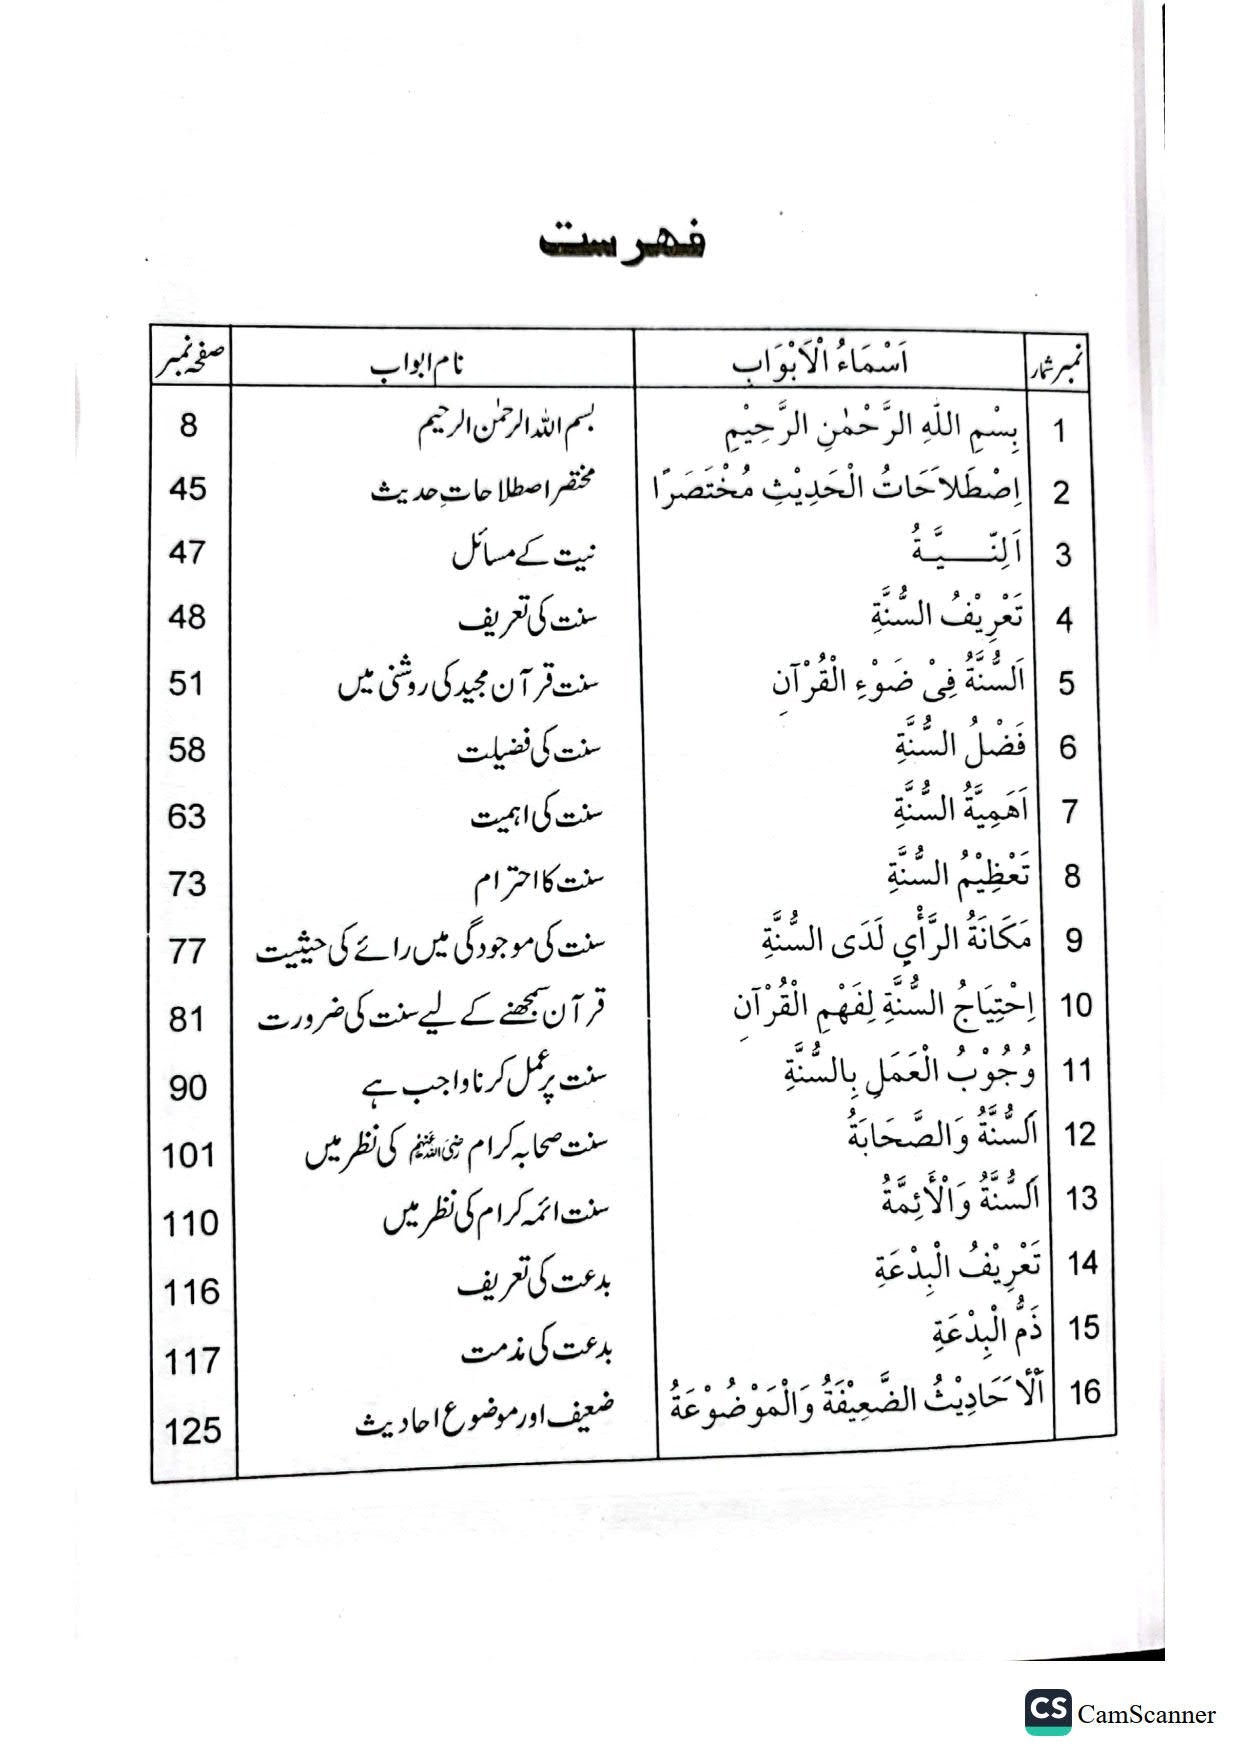 فہرست
نمبر شمار اَسْمَاءُ الْاَبْوَابِ نام ابواب صفحہ نمبر
1 بِسْمِ اللّٰهِ الرَّحْمٰنِ الرَّحِيْمِ بسم اللہ الرحمٰن الرحیم 8
2 اِصْطَلاَحَاتُ الْحَدِيْثِ مُخْتَصَرًا مختصر اصطلاحاتِ حدیث 45
3 اَلنِّـــــيَّةُ نیت کے مسائل 47
4 تَعْرِيْفُ السُّنَّةِ سنت کی تعریف 48
5 اَلسُّنَّةُ فِىْ ضَوْءِ الْقُرْآنِ سنت قرآن مجید کی روشنی میں 51
6 فَضْلُ السُّنَّةِ سنت کی فضیلت 58
7 اَهَمِيَّةُ السُّنَّةِ سنت کی اہمیت 63
8 تَعْظِيْمُ السُّنَّةِ سنت کا احترام 73
9 مَكَانَةُ الرَّأْيِ لَدَى السُّنَّةِ سنت کی موجودگی میں رائے کی حیثیت 77
10 اِحْتِيَاجُ السُّنَّةِ لِفَهْمِ الْقُرْآنِ قرآن سمجھنے کے لیے سنت کی ضرورت 81
11 وُجُوْبُ الْعَمَلِ بِالسُّنَّةِ سنت پر عمل کرنا واجب ہے 90
12 اَلسُّنَّةُ وَالصَّحَابَةُ سنت صحابہ کرام رضی اللہ عنہم کی نظر میں 101
13 اَلسُّنَّةُ وَالْأَئِمَّةُ سنت ائمہ کرام کی نظر میں 110
14 تَعْرِيْفُ الْبِدْعَةِ بدعت کی تعریف 116
15 ذَمُّ الْبِدْعَةِ بدعت کی مذمت 117
16 اَلْأَحَادِيْثُ الضَّعِيْفَةُ وَالْمَوْضُوْعَةُ ضعیف اور موضوع احادیث 125
CS CamScanner